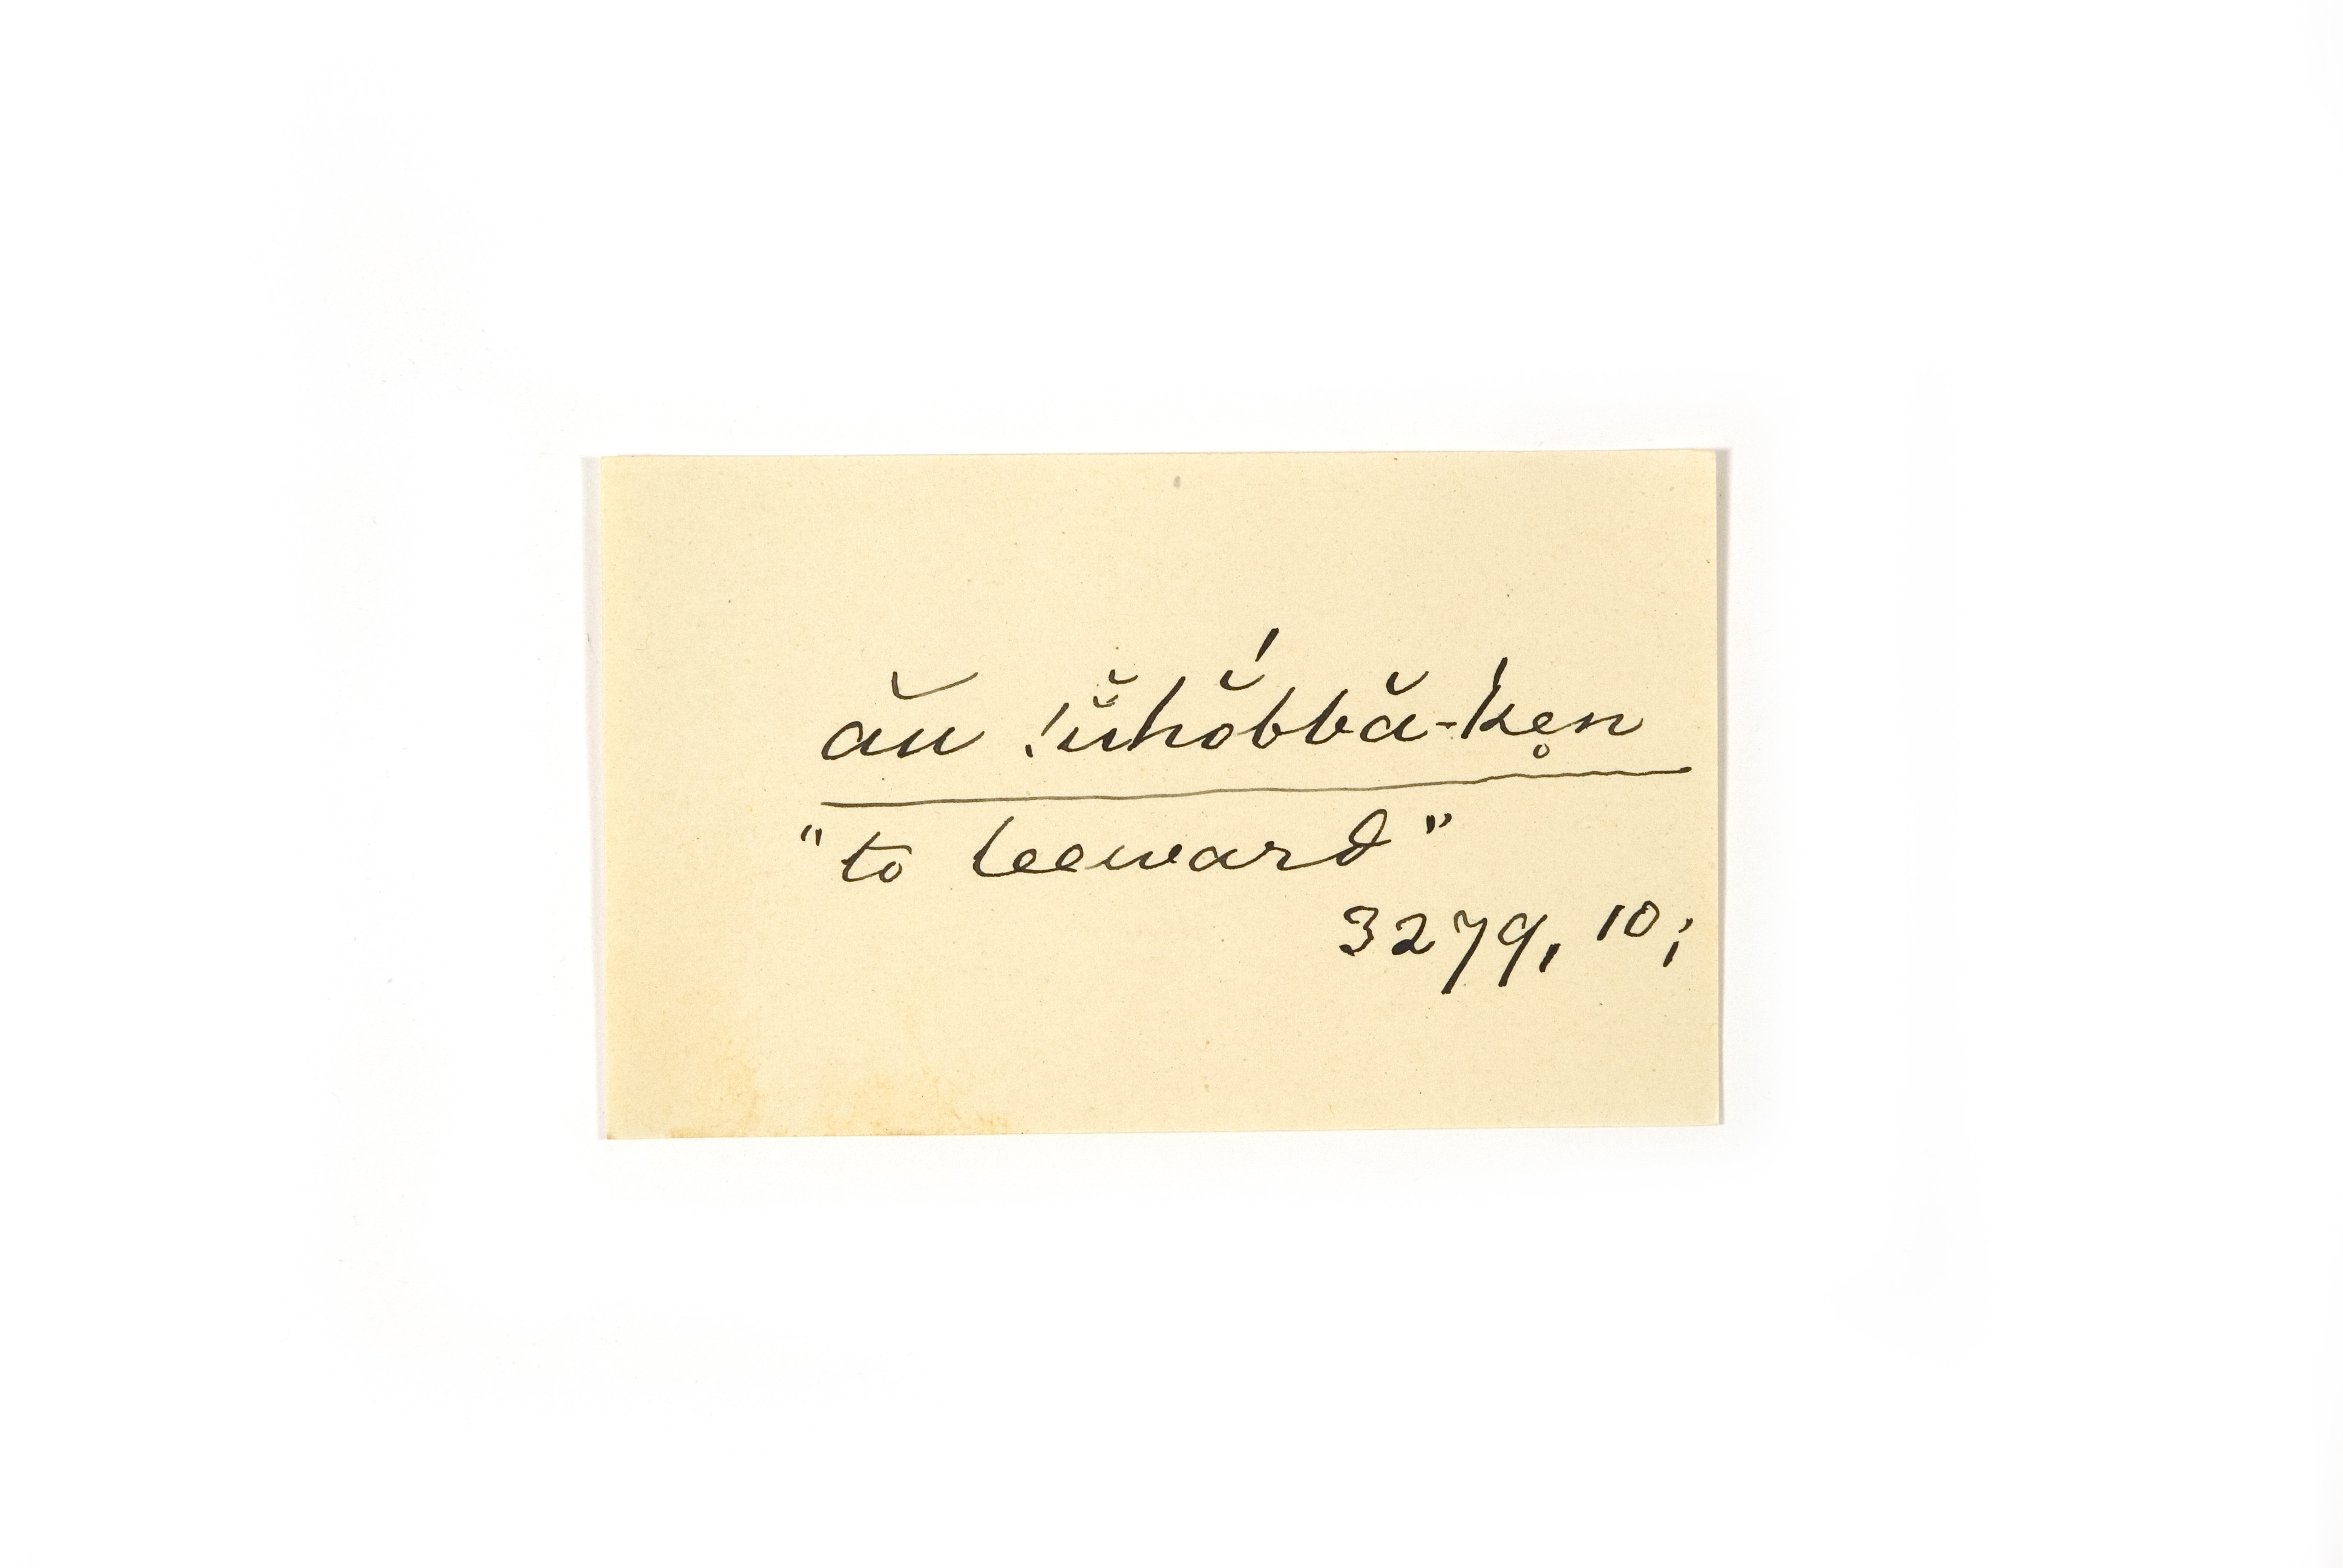 ău !ŭ̈hŏ́bbă-ken̥
"to leeward"
3279, 10;